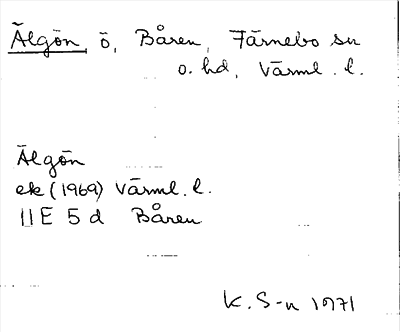 Älgön, ö, Båren, Färnebo sn
o. hd, Värml. l.
Älgön
ek (1969) Värml. l.
11E 5d Båren
K. S-n 1971